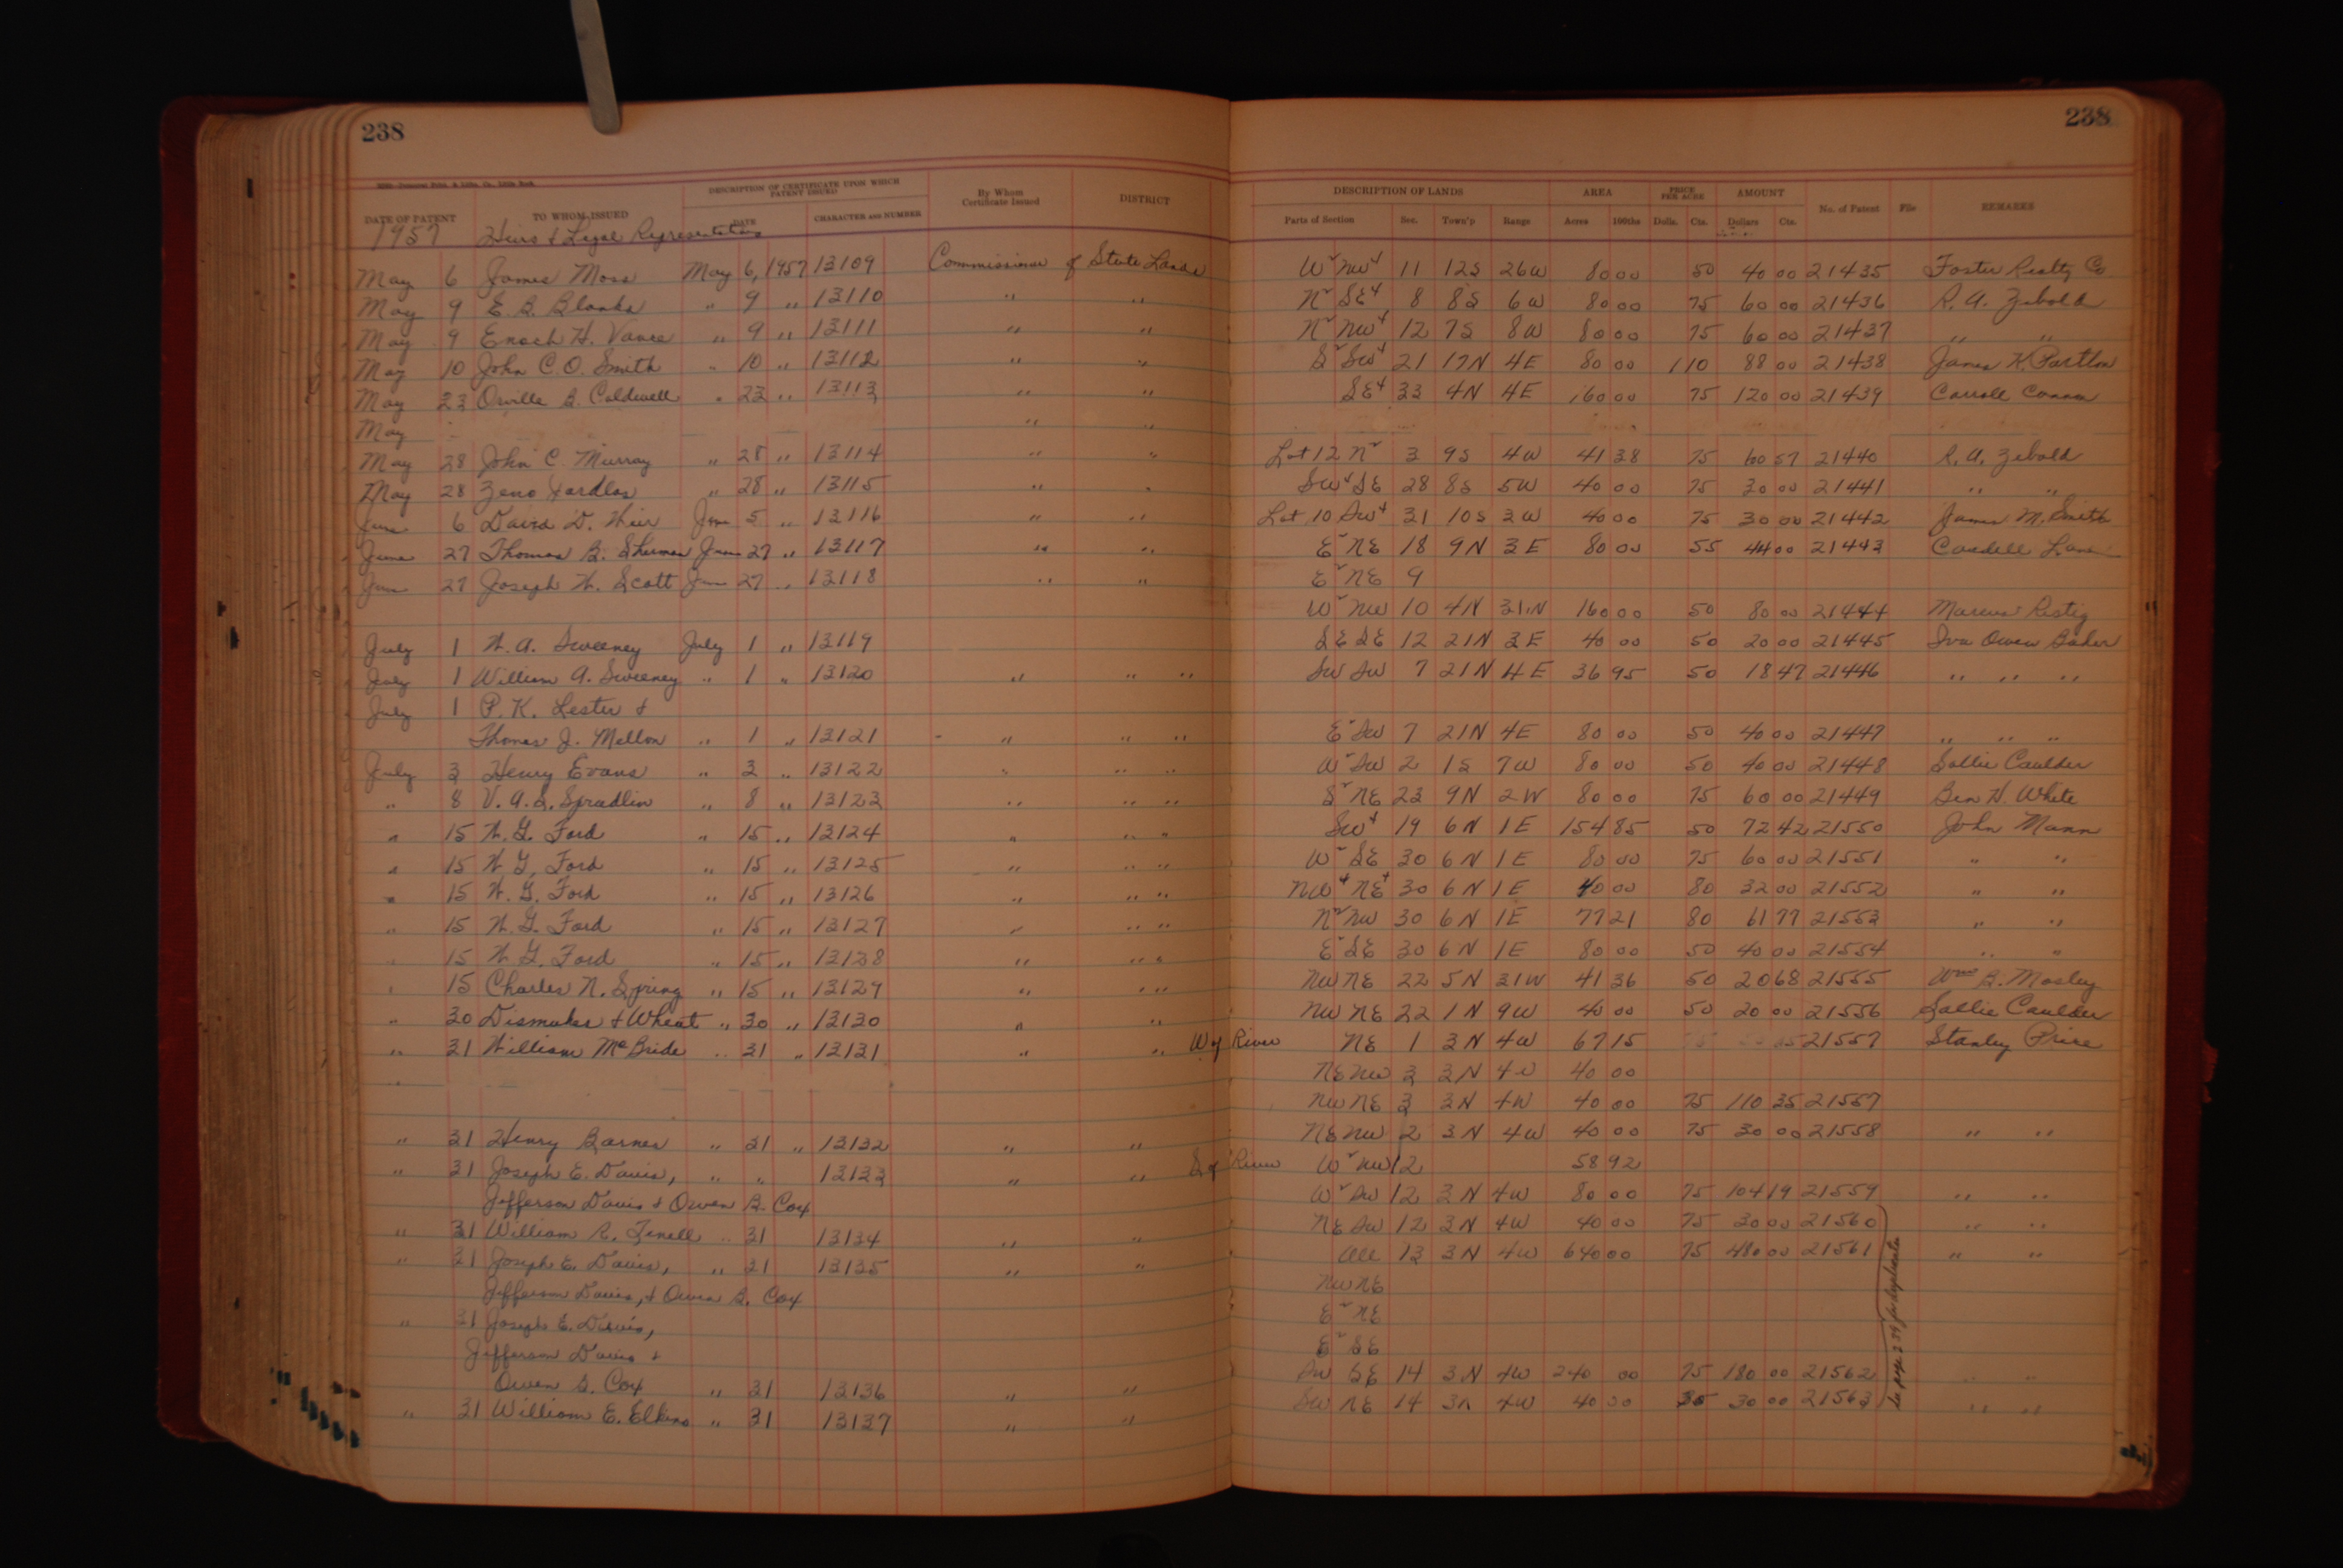 238 238
DESCRIPTION OF CERTIFICATE UPON WHICH PATENT ISSUED By Whom Certificate Issued DISTRICT DESCRIPTION OF LANDS AREA PRICE PER ACRE AMOUNT No. of Patent File REMARKS
DATE OF PATENT TO WHOM ISSUED DATE CHARACTER AND NUMBER Parts of Section Sec. Town'p Range Acres 100ths Dolls. Cts. Dollars Cts.
1957 Heirs & Legal Representatives
May 6 James Moss May 6, 1957 13109 Commissioner of State Lands W² NW⁴ 11 12S 26W 80 00 50 40 00 21435 Foster Realty Co
May 9 E. B. Blanks " 9 " 13110 " " N² SE⁴ 8 8S 6W 80 00 75 60 00 21436 R. A. Zebold
May 9 Enoch H. Vance " 9 " 13111 " " N² NW⁴ 12 7S 8W 80 00 75 60 00 21437 " "
May 10 John C. O. Smith " 10 " 13112 " " S² SW⁴ 21 17N 4E 80 00 1 10 88 00 21438 James K. Partlow
May 23 Orville B. Caldwell " 23 " 13113 " " SE⁴ 33 4N 4E 160 00 75 120 00 21439 Carroll Cannon
May " "
May 28 John C. Murray " 28 " 13114 " " Lot 12 N² 3 9S 4W 41 38 75 60 57 21440 R. A. Zebold
May 28 Zeno " 28 " 13115 " " SW⁴ SE 28 8S 5W 40 00 75 30 00 21441 " "
June 6 David D. Weir June 5 " 13116 " " Lot 10 SW⁴ 31 10S 3W 40 00 75 30 00 21442 James M. Smith
June 27 Thomas B. Sherman June 27 " 13117 " " E² NE 18 9N 3E 80 00 55 44 00 21443
June 27 Joseph W. Scott June 27 " 13118 " " E² NE 9
W² NW 10 4N 31W 160 00 50 80 00 21444 Marcus
July 1 W. A. Sweeney July 1 " 13119 SE SE 12 21N 3E 40 00 50 20 00 21445 Iva Owen Baker
July 1 William A. Sweeney " 1 " 13120 " " " SW SW 7 21N 4E 36 95 50 18 47 21446 " " "
July 1 P. K. Lester &
Thomas J. Mellon " 1 " 13121 " " " E² SW 7 21N 4E 80 00 50 40 00 21447 " " "
July 3 Henry Evans " 3 " 13122 " " " W² SW 2 1S 7W 80 00 50 40 00 21448 Sallie Caulder
" 8 V. A. S. Spradlin " 8 " 13123 " " " S² NE 23 9N 2W 80 00 75 60 00 21449 Ben H. White
" 15 W. G. Ford " 15 " 13124 " " " SW⁴ 19 6N 1E 154 85 50 72 42 21550 John Mann
" 15 W. G. Ford " 15 " 13125 " " " W² SE 30 6N 1E 80 00 75 60 00 21551 " "
" 15 W. G. Ford " 15 " 13126 " " " NW⁴ NE⁴ 30 6N 1E 40 00 80 32 00 21552 " "
" 15 W. G. Ford " 15 " 13127 " " " N² NW 30 6N 1E 77 21 80 61 77 21553 " "
" 15 W. G. Ford " 15 " 13128 " " " E² SE 30 6N 1E 80 00 50 40 00 21554 " "
" 15 Charles N. Spring " 15 " 13129 " " " NW NE 22 5N 31W 41 36 50 20 68 21555 Wm B. Mosley
" 30 Dismukes & Wheat " 30 " 13130 " " NW NE 22 1N 9W 40 00 50 20 00 21556 Sallie Caulder
" 31 William McBride " 31 " 13131 " " W of River NE 1 3N 4W 67 15 21557 Stanley Price
" NE NW 3 3N 4W 40 00
NW NE 3 3N 4W 40 00 75 110 35 21557
" 31 Henry Barnes " 31 " 13132 " " NE NW 2 3N 4W 40 00 75 30 00 21558 " "
" 31 Joseph E. Davis, " " 13133 " " S of River W² NW 12 58 92
Jefferson Davis & Owen B. Cox W² SW 12 3N 4W 80 00 75 104 19 21559 " "
" 31 William R. " 31 13134 " " NE SW 12 3N 4W 40 00 75 30 00 21560 " "
" 31 Joseph E. Davis, " 31 13135 " " All 13 3N 4W 640 00 75 480 00 21561 " "
Jefferson Davis, & Owen B. Cox NW NE
" 31 Joseph E. Davis, E² NE
Jefferson Davis & E² SE
Owen B. Cox " 31 13136 " " SW SE 14 3N 4W 240 00 75 180 00 21562 " "
" 31 William E. Elkins " 31 13137 " " SW NE 14 3N 4W 40 00 30 00 21563 " "
See page 239 for duplicates